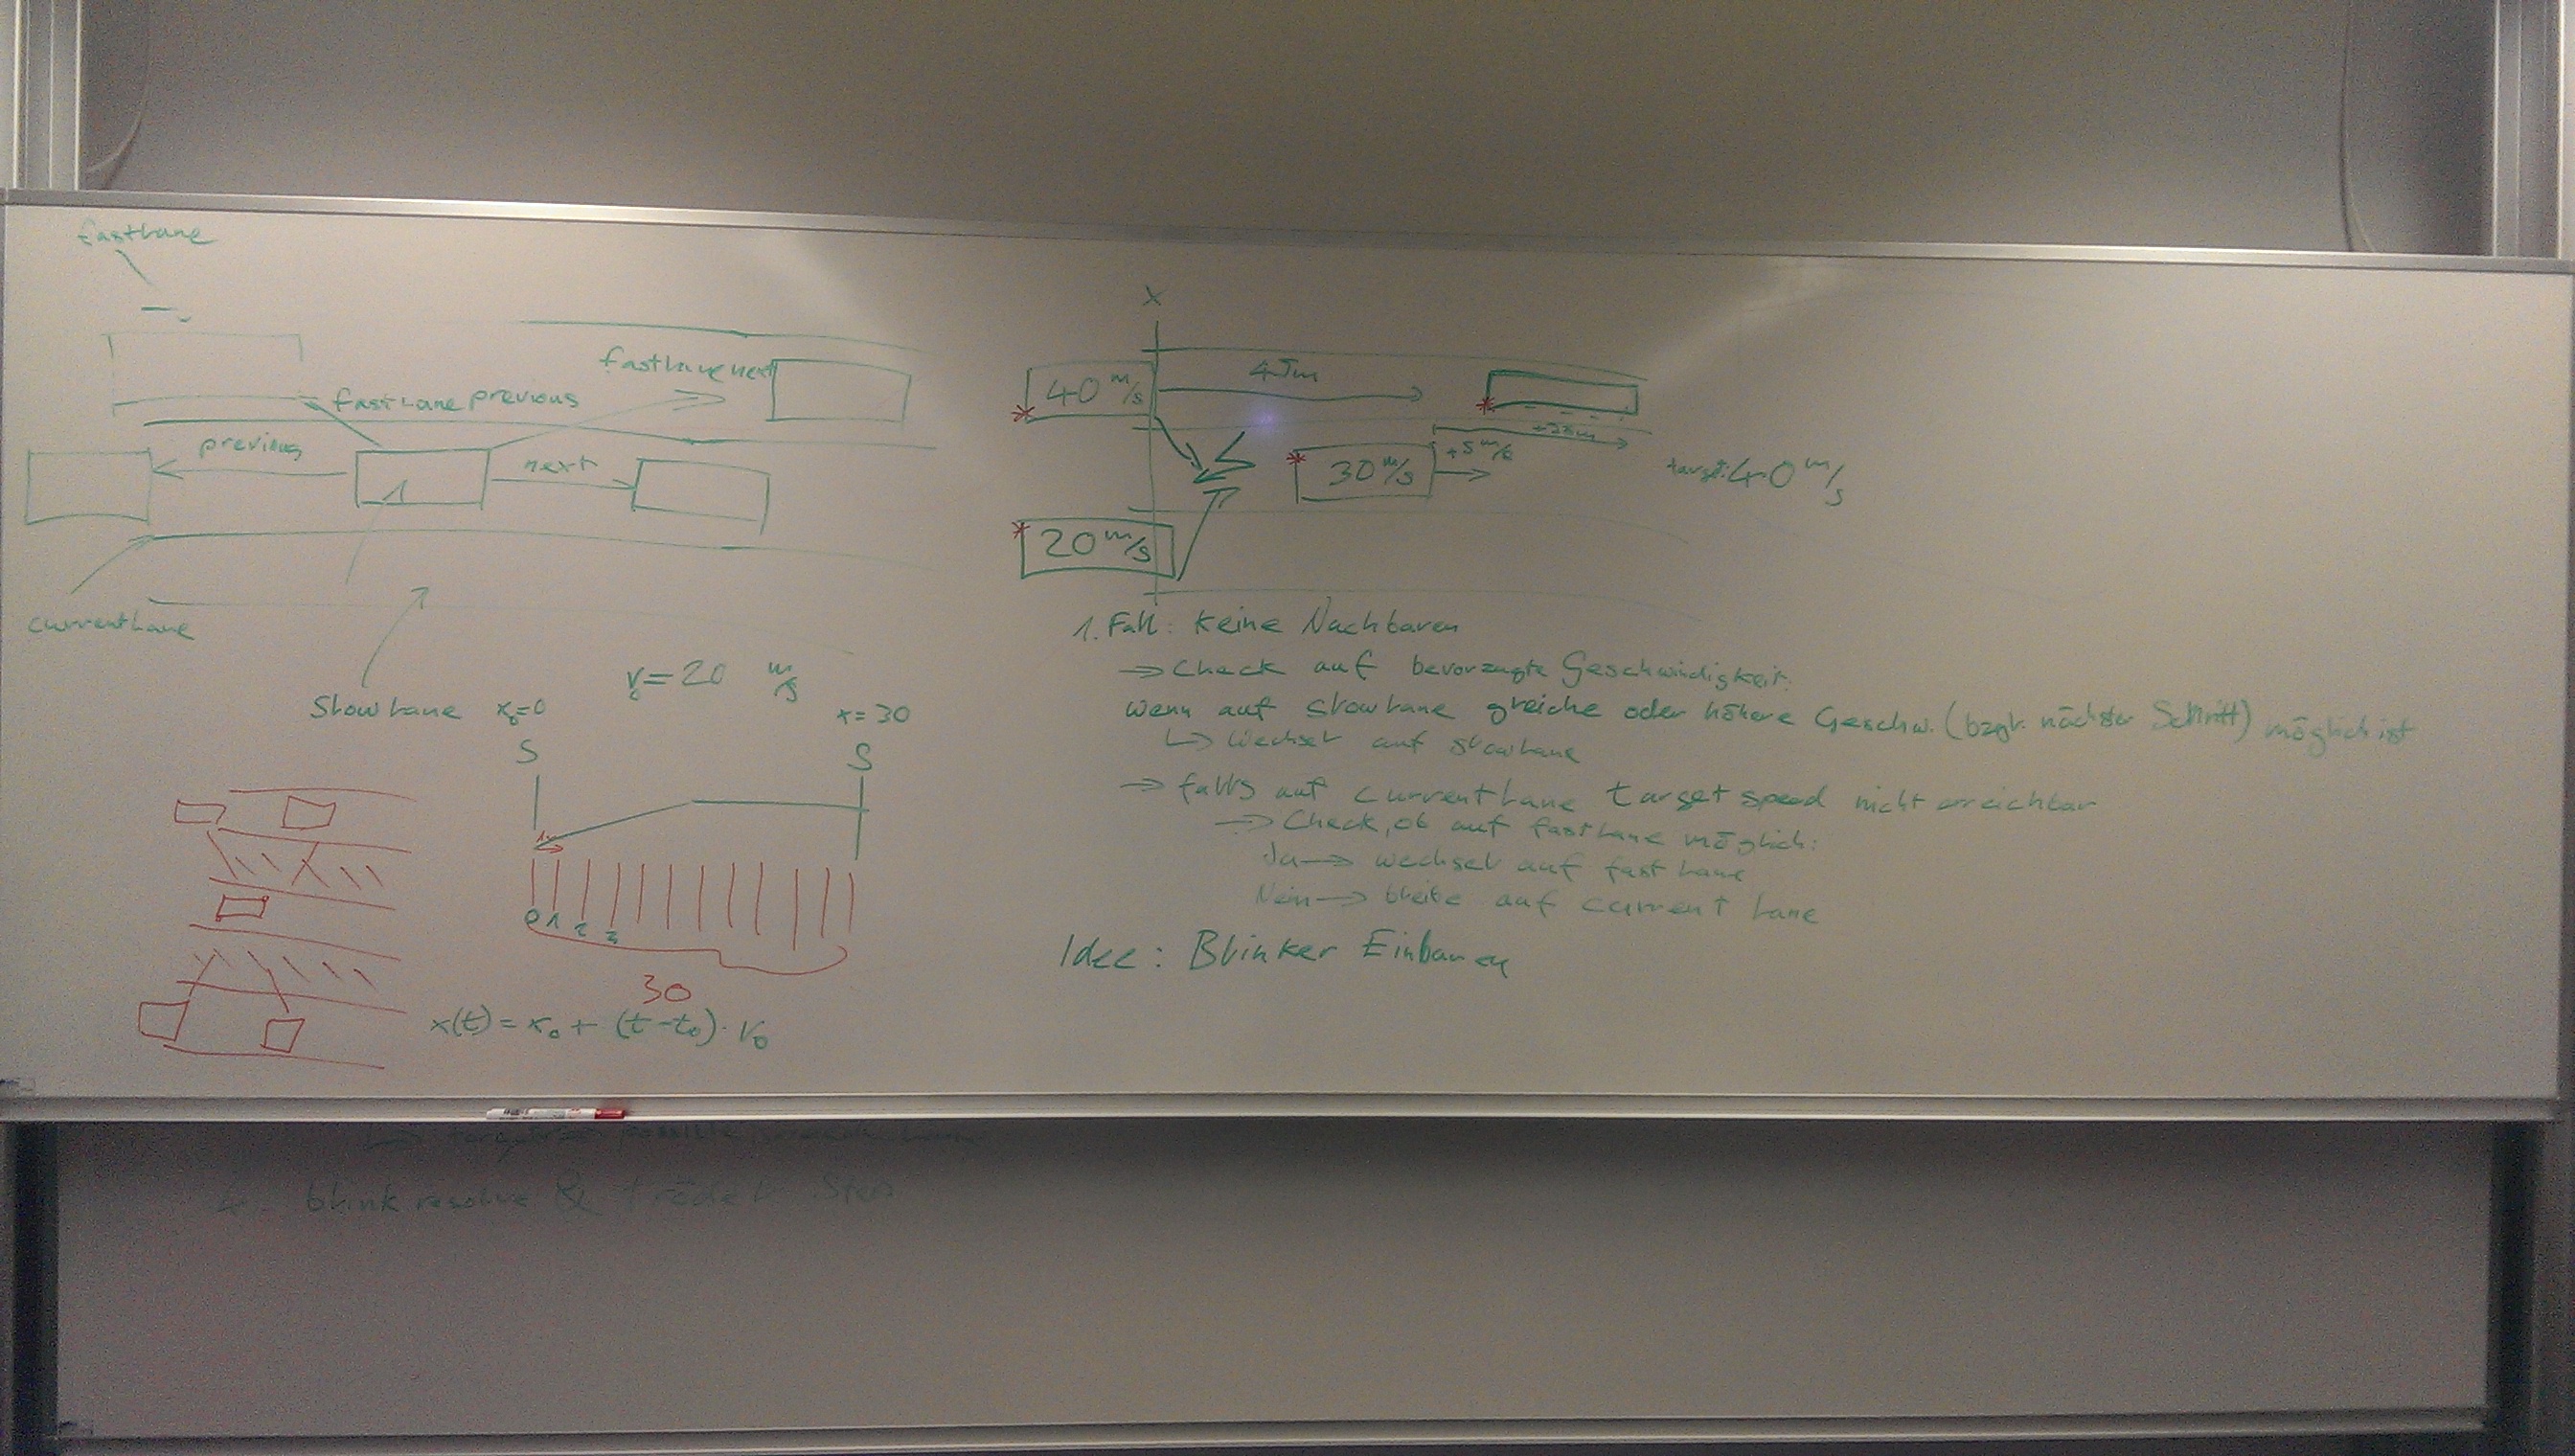 fastLane
fastLane next
fastLane previous
previous
next
1
currentLane
SlowLane
v₀=20 m/s
x₀=0
x=30
S
S
0 1 2 3
30
x(t) = x₀ + (t-t₀)·v₀
X
40 m/s
45m
+5 m/s
30 m/s
target: 40 m/s
20 m/s
1. Fall: Keine Nachbaren
→ Check auf bevorzugte Geschwindigkeit:
wenn auf slowlane gleiche oder höhere Geschw. (bzgl. nächster Schritt) möglich ist
↳ Wechsel auf slowlane
→ falls auf currentlane target speed nicht erreichbar
→ Check, ob auf fastlane möglich:
Ja → wechsel auf fast lane
Nein → bleibe auf current lane
Idee: Blinker Einbauen
4. blink resolve &